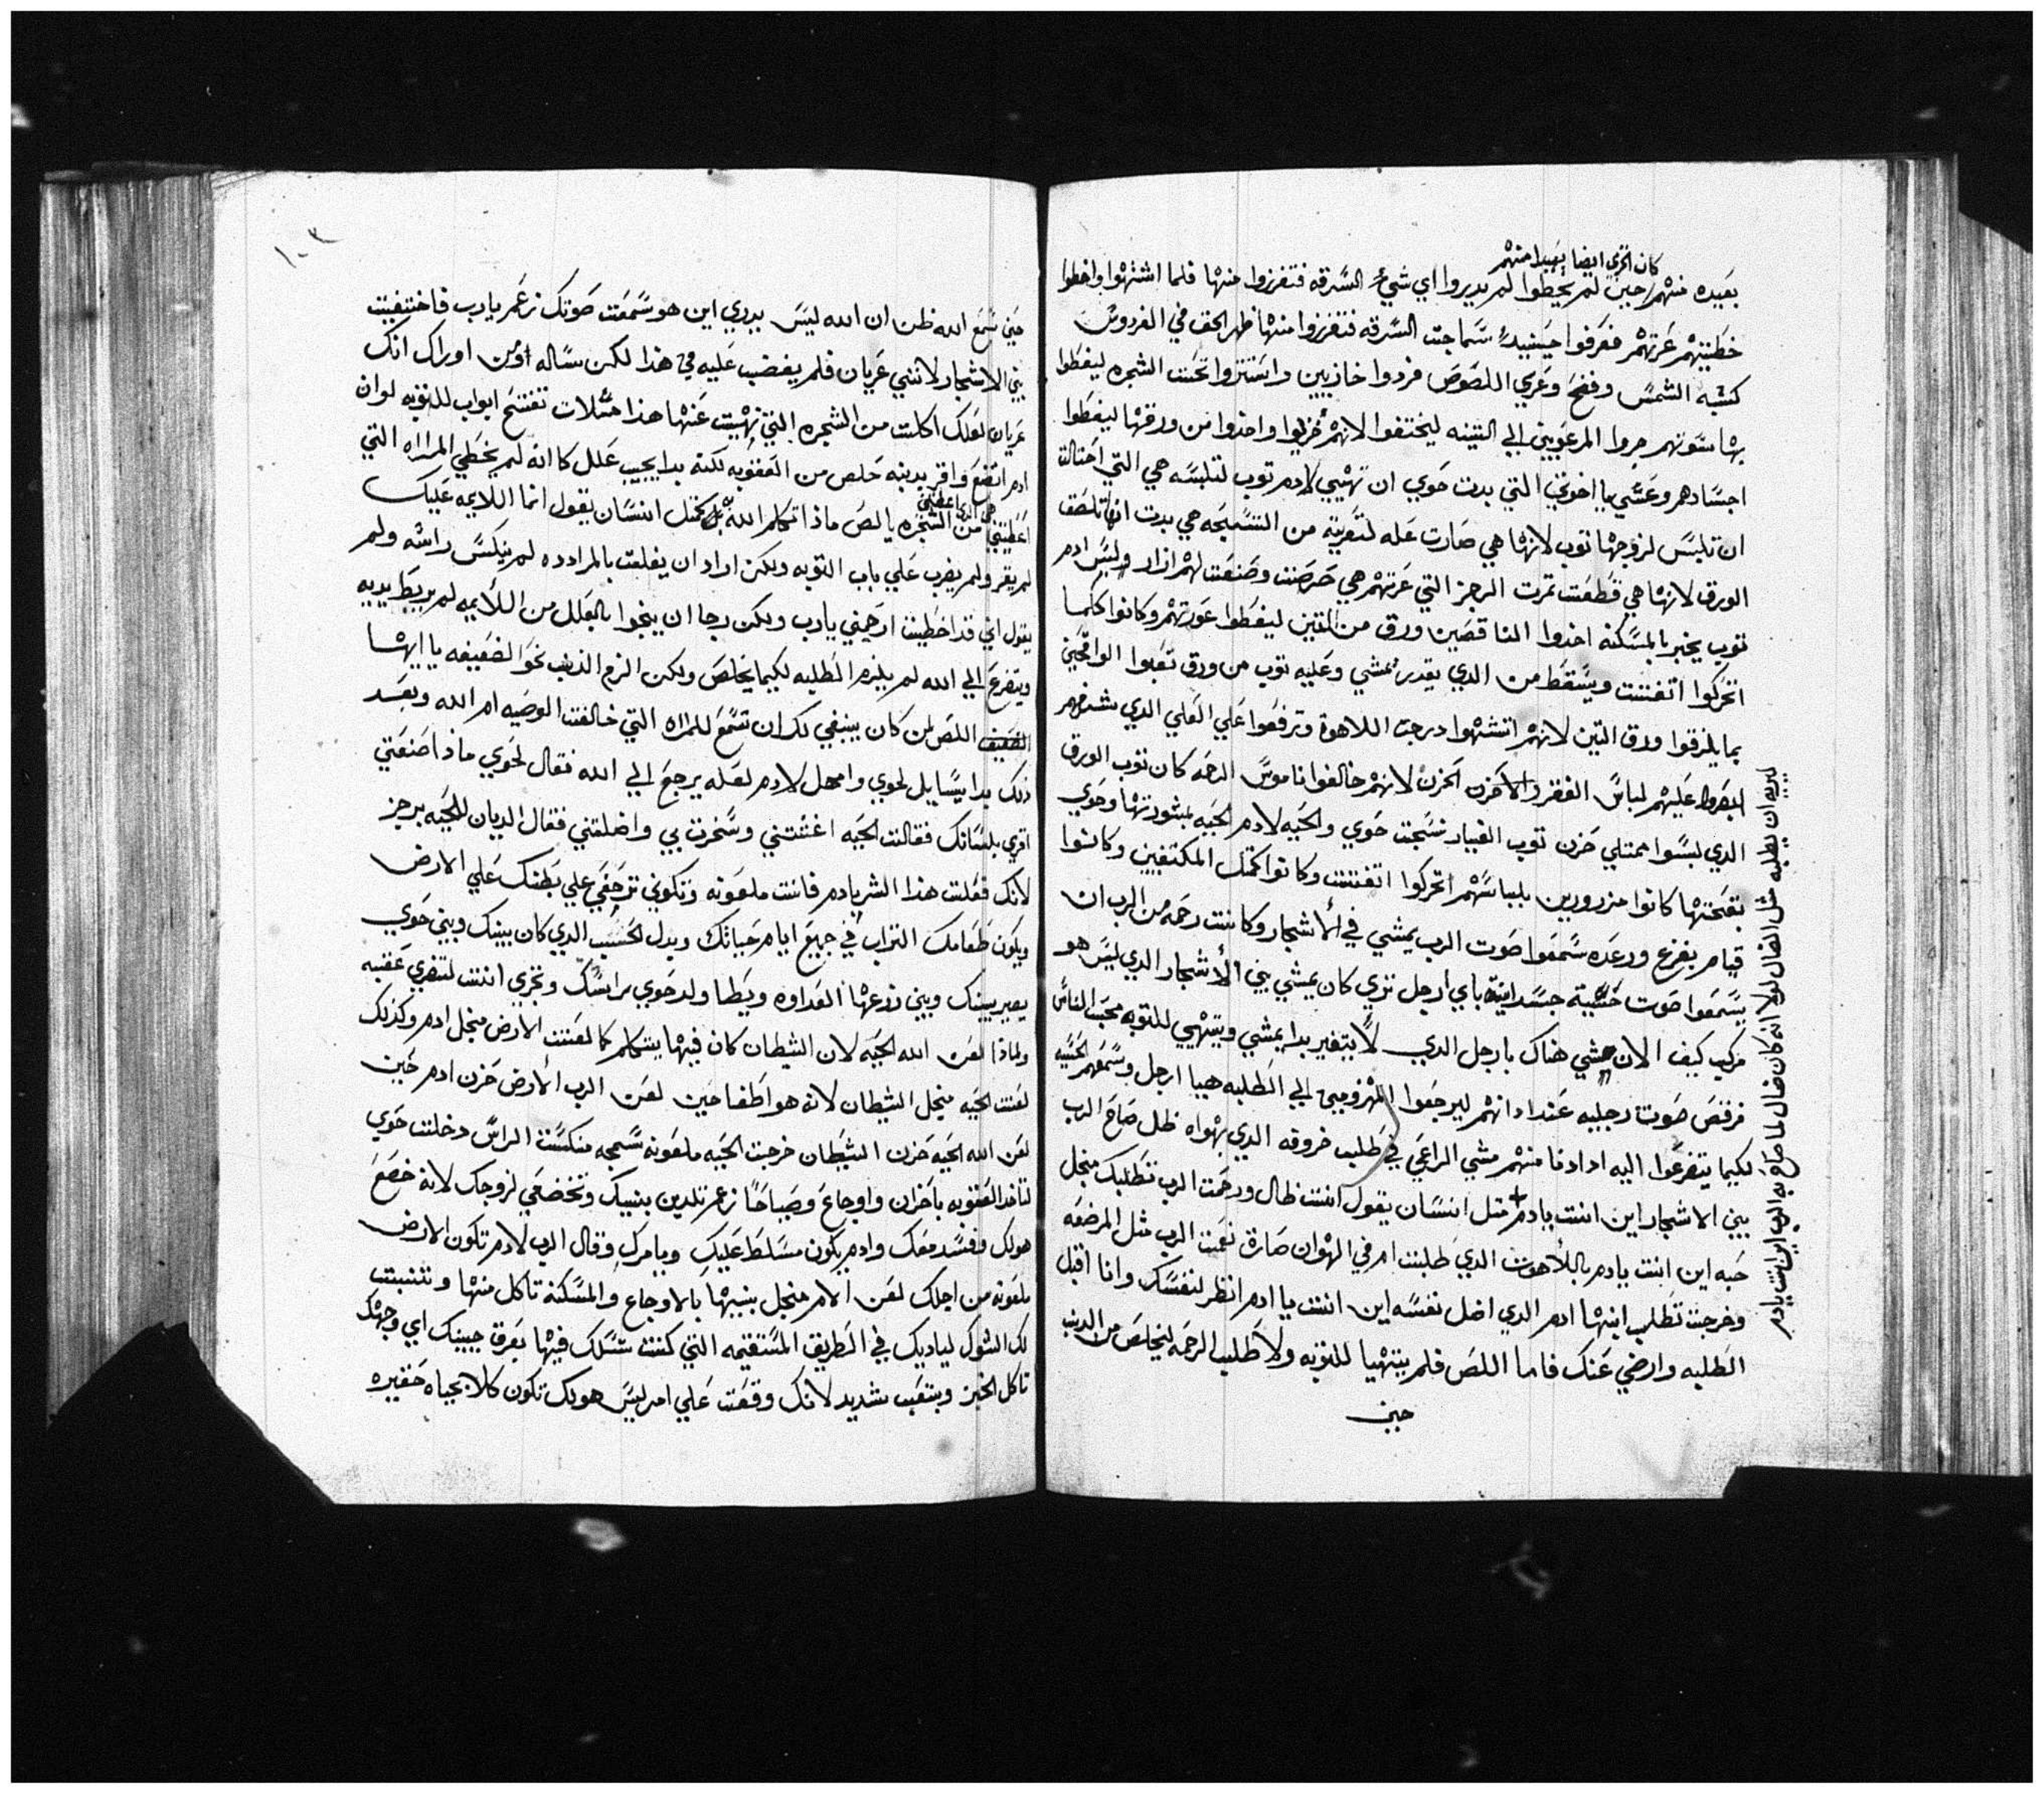 كان الخزي ايضا بعيدا منهم
بعيده منهم حين لم يخطوا لم يديروا اي شيء السرقه فتفرزوا منها فلما اشتهوا واخطوا
خطيتهم عرتهم فعرفوا حينيد سماجت السرقه فتفرزوا منها ظهر الحق في الفردوس
كشبه الشمس وفضح وعري اللصوص فردوا خازيين واستتروا تحت الشجره ليغطوا
بها سوتهم جروا المرعوبين الي التينه ليختفوا لانهم خزيوا واخذوا من ورقها ليغطوا
اجسادهم وعسي يا اخوتي التي بدت حوي ان تهيي لادم توب لتلبسه هي التي احتالت
ان تلبس لزوجها توب لانها هي صارت عله لتعريته من التسبحه هي بدت انها تلصق
الورق لانها هي قطفت تمرت الرجز التي عرتهم هي حرصت وصنعت لهم ازار ولبس ادم
توب يخبر بالمسكنه اخذوا الناقصين ورق من التين ليغطوا عورتهم وكانوا كلما
اتحركوا اتفتت ويسقط من الدي يقدر يمشي وعليه توب من ورق تعبوا الواقحين
بما يلزقوا ورق التين لانهم اتشتهوا درجت اللاهوة وترفعوا علي العلي الدي
ابصروا عليهم لباس الفقر والاحزن الحزن لانهم خالفوا ناموس الرحمه كان توب الورق
الدي لبسوا ممتلي حزن توب العيار نسجت حوي والحيه لادم الحيه بمشورتها وحوي
بقبحتها كانوا مزرورين بلباسهم اتحركوا اتفتت وكانوا كمتل المكتفين وكانوا
قيام بفزع ورعده سمعوا صوت الرب يمشي في الاشجار وكانت رحمه من الرب ان
يسمعوا صوت خشبة جسدانية باي ارجل تري كان يمشي بين الاشجار الدي ليس هو
مركب كيف الان مشي هناك بارجل الدي لا يتغير بدا يمشي ويتهيي للتوبه محب الناس
فرقص صوت رجليه عند ادانهم ليرجعوا المهزومين الي الطلبه هيا ارجل وسمعهم الحس
لكيما يتضرعوا اليه ادادنا منهم مشي الراعي في طلب خروفه الدي يهواه ظل صاح الرب
بين الاشجار اين انت يادم متل انسان يقول انت ظال ورحمت الرب تطلبك منجل
حبه اين انت يادم باللاهوت الدي طلبت ام في الهوان صارة نعمت الرب مثل المرضعه
وخرجت تطلب ابنها ادم الدي اضل نفسه اين انت يا ادم انظر لنفسك وانا اقبل
الطلبه وارضي عنك فاما اللص فلم يتهيا للتوبه ولا طلب الرحمه ليخلص من الدنب
حين
لم يريد ان يطلبه مثل الضال لولا انه كان ضال لما صاح به الرب اين انت يادم
١٠٣
حين سمع الله ظن ان الله ليس بدري اين هو سمعت صوتك زعم يارب فاختفيت
بين الاشجار لانني عريان فلم يغضب عليه في هذا لكن ساله اومن اوراك انك
عريان لعلك اكلت من الشجره التي نهيت عنها هذا متلات تفتح ابواب للتوبه لوان
ادم اتضع واقر بدينه خلص من العقوبه لكنه بدا يجيب علل كانه لم يخطي المراه التي
هي التي اعطتني
اعطيتني من الشجره يالص ماذا تكلم الله بل كمتل انسان يقول انما اللايمه عليك
لم يقر ولم يضرب علي باب التوبه ولكن اراد ان يفلت بالمرادده لم ينكس راسه ولم
يقول اني قد اخطيت ارحمني يارب ولكن رجا ان ينجوا بالعلل من اللأيمه لم يربط يديه
ويتضرع الي الله لم يلزم الطلبه لكيما يخلص ولكن الزم الذنب نحو الضعيفه يا ايها
الضعيف اللص لمن كان ينبغي لك ان تسمع للمراه التي خالفت الوصيه ام الله وبعد
ذلك بدا يسايل لحوي وامهل لادم لعله يرجع الي الله فقال لحوي ماذا صنعتي
اقري بلسانك فقالت الحيه اغتتني وسخرت بي واضلتني فقال الديان للحيه برجز
لانك فعلت هذا الشر بادم فانت ملعونه وتكوني تزحفي علي بطنك علي الارض
ويكون طعامك التراب في جميع ايام حياتك وبدل الحسب الدي كان بينك وبين حوي
يصير بينك وبين زرعها العداوه ويطا ولد حوي راسك وتجزي انت لتضري عقبه
ولماذا لعن الله الحيه لان الشطان كان فيها يتكلم كما لعنت الارض منجل ادم وكذلك
لعنت الحيه منجل الشيطان لانه هو اطغا حين لعن الرب الأرض حزن ادم حين
لعن الله الحيه حزن الشيطان خرجت الحيه ملعونه سمجه منكست الراس دخلت حوي
لتاخد العقوبه باحزان واوجاع وصياحا زعم تلدين بنيك وتخضعي لزوجك لانه خضع
هو لك وفسد معك وادم يكون مسلط عليك ويامرك وقال الرب لادم تكون الارض
ملعونه من اجلك لعن الام منجل بنيها بالاوجاع والمسكنة تاكل منها وتنبت
لك الشوك لياديك في الطريق المستقيمه التي كنت تسلك فيها بعرق جبينك اي وجهك
تاكل الخبز وبتعب شديد لانك وقعت علي امر ليس هو لك تكون كلا بحياه حقيره